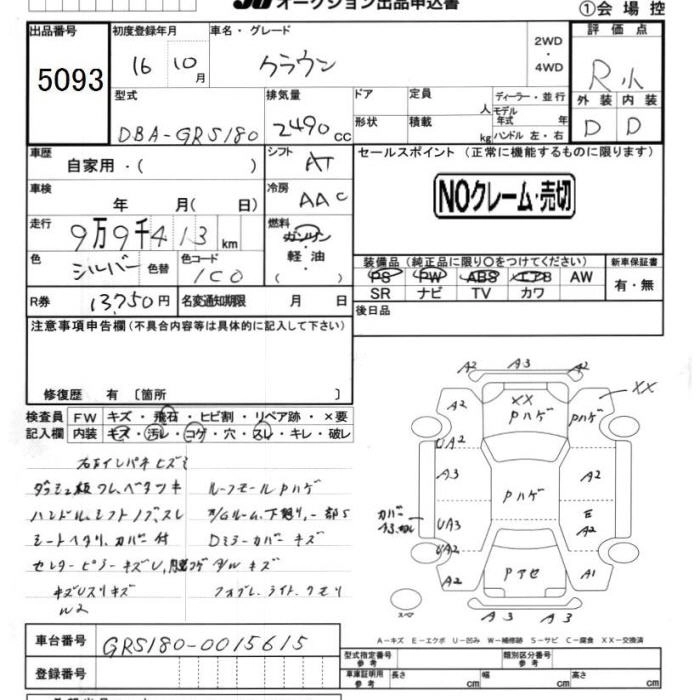 オークション出品申込書
①会場控
出品番号
5093
初度登録年月
16 10月
車名・グレード
クラウン
2WD
・
4WD
評価点
R 小
外装 内装
D D
型式
DBA-GRS180
排気量
2490cc
ドア
定員
人
形状
積載
kg
ディーラー・並行
モデル年式 年
ハンドル 左・右
車歴
自家用・( )
シフト
AT
セールスポイント (正常に機能するものに限ります)
NOクレーム・売切
車検
年 月( 日)
冷房
AAC
走行
9万9千413km
燃料
ガソリン
・
軽油
( )
色
シルバー
色替
色コード
1C0
装備品 (純正品に限り○をつけてください)
新車保証書
PS PW ABS エアB AW
SR ナビ TV カワ
有・無
R券
13,750円
名変通知期限 月 日
後日品
注意事項申告欄(不具合内容等は具体的に記入して下さい)
修復歴 有 〔箇所 〕
検査員
記入欄
FW キズ・飛石・ヒビ割・リペア跡・×要
内装 キズ・汚レ・コゲ・穴・スレ・キレ・破レ
ハンドル、シフトノブ、スレ
ルーフモール Pハゲ
シートヘタリ、カバー付
Dミラーカバー キズ
キズ
W2
A2 A3 A2
XX
A2 XX Pハゲ Pハゲ
UA2
A3 Pハゲ A2
E
A2
カバー
UA3
UA2
A2 Pアセ A1
スペア
A3 A3
A-キズ E-エクボ U-凹み W-補修跡 S-サビ C-腐食 XX-交換済
車台番号
GRS180-0015615
登録番号
型式指定番号
参考
類別区分番号
参考
車庫証明用
参考
長さ cm
幅 cm
高さ cm